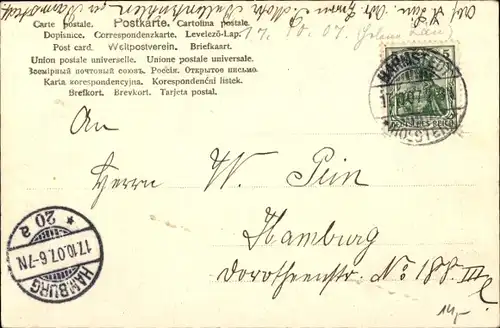 Carte postale. Postkarte. Cartolina postale.
Dopisnice. Correspondenzkarte. Levelező-Lap.
Post card. Weltpostverein. Briefkaart.
Union postale universelle. Unione postale universale.
Всемірный почтовый союзъ. Россія. Открытое письмо.
Karta korespondencyjna. Korespondenční listek.
Brefkort. Brevkort. Tarjeta postal.
17. 10. 07.
BARMSTEDT
DEUTSCHES REICH
*(HOLSTEIN)
An
Herrn W. Pein
Hamburg
Dorotheenstr. No 188 III
HAMBURG
17.10.07.6-7N
* 20 a
14,-